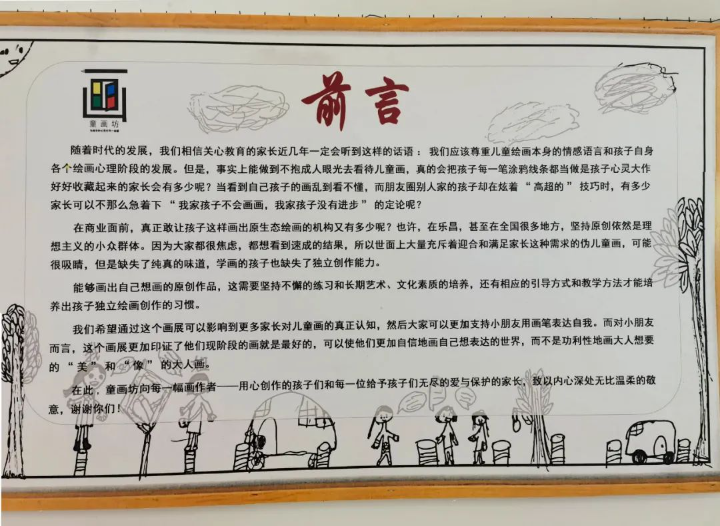 前言
童画坊
随着时代的发展，我们相信关心教育的家长近几年一定会听到这样的话语：我们应该尊重儿童绘画本身的情感语言和孩子自身
各个绘画心理阶段的发展。但是，事实上能做到不抱成人眼光去看待儿童画，真的会把孩子每一笔涂鸦线条都当做是孩子心灵大作
好好收藏起来的家长会有多少呢？当看到自己孩子的画乱到看不懂，而朋友圈别人家的孩子却在炫着“高超的”技巧时，有多少
家长可以不那么急着下“我家孩子不会画画，我家孩子没有进步”的定论呢？
在商业面前，真正敢让孩子这样画出原生态绘画的机构又有多少呢？也许，在乐昌，甚至在全国很多地方，坚持原创依然是理
想主义的小众群体。因为大家都很焦虑，都想看到速成的结果，所以世面上大量充斥着迎合和满足家长这种需求的伪儿童画，可能
很吸睛，但是缺失了纯真的味道，学画的孩子也缺失了独立创作能力。
能够画出自己想画的原创作品，这需要坚持不懈的练习和长期艺术、文化素质的培养，还有相应的引导方式和教学方法才能培
养出孩子独立绘画创作的习惯。
我们希望通过这个画展可以影响到更多家长对儿童画的真正认知，然后大家可以更加支持小朋友用画笔表达自我。而对小朋友
而言，这个画展更加印证了他们现阶段的画就是最好的，可以使他们更加自信地画自己想表达的世界，而不是功利性地画大人想要
的“美”和“像”的大人画。
在此，童画坊向每一幅画作者——用心创作的孩子们和每一位给予孩子们无尽的爱与保护的家长，致以内心深处无比温柔的敬
意，谢谢你们！